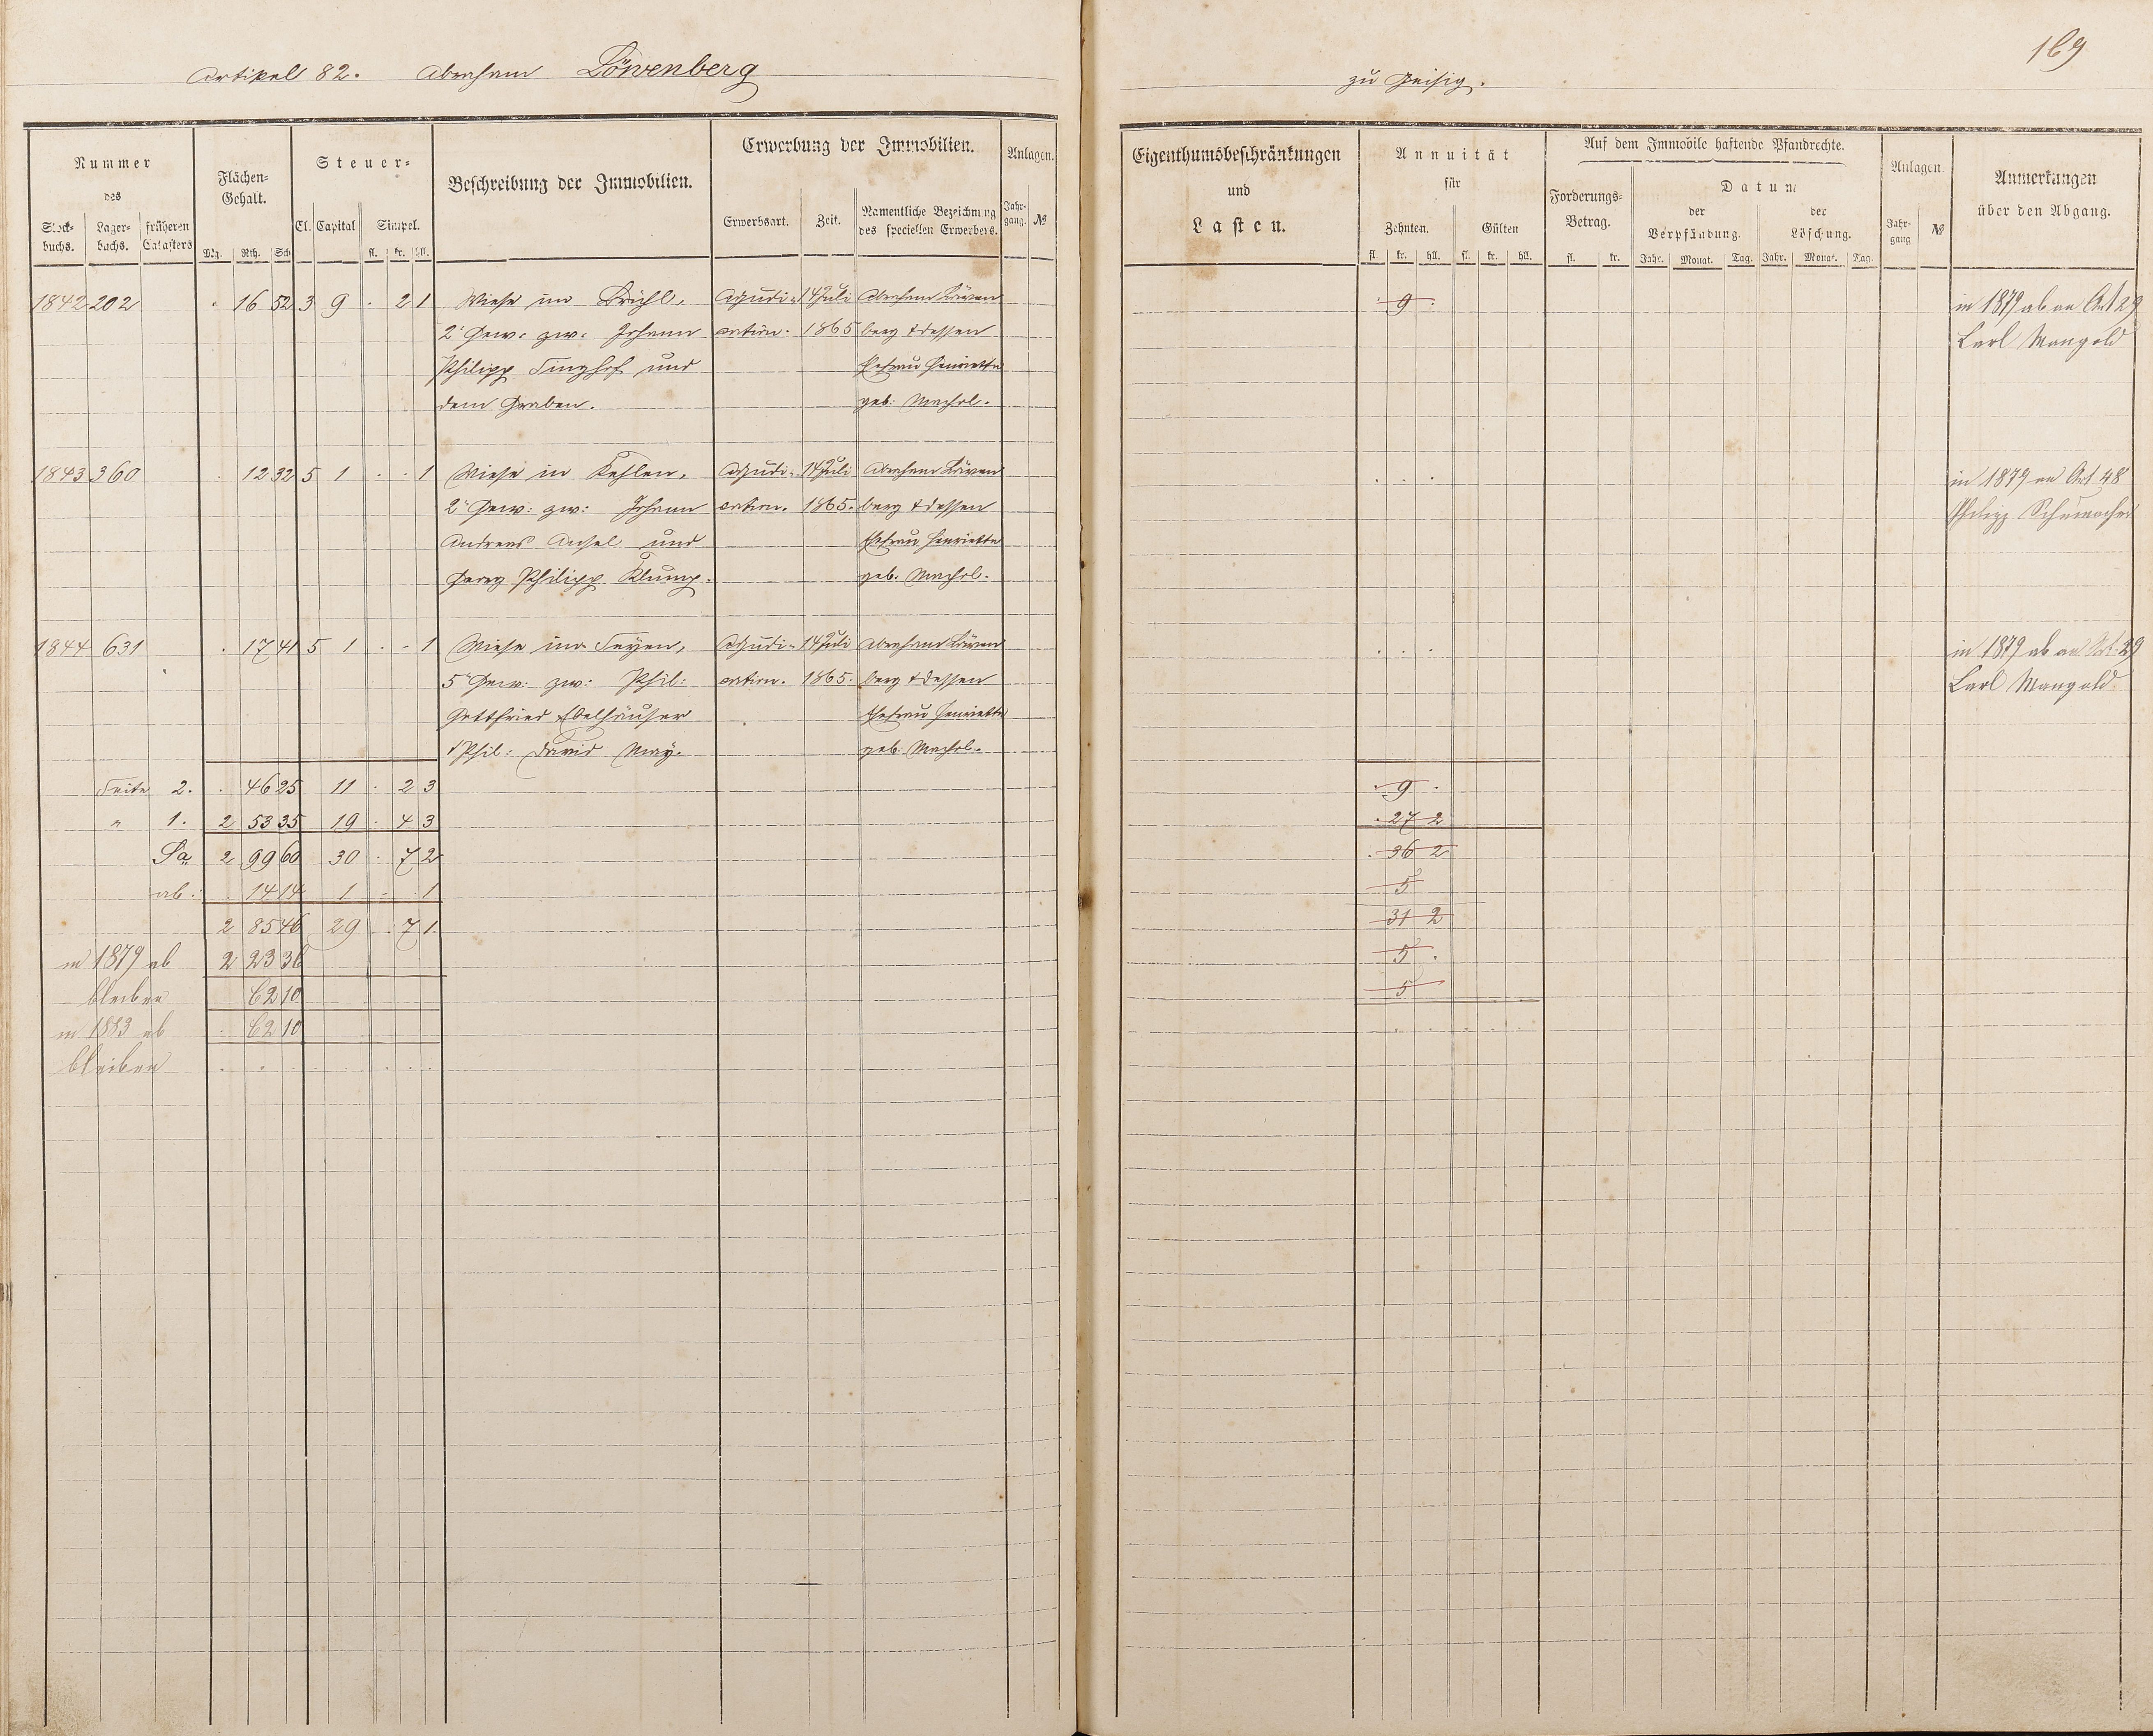 Artikel 82. Abraham Löwenberg
Nummer
des
Stock-
buchs.
Lager-
buchs.
früheren
Catasters
Flächen-
Gehalt.
Mg. Rth. Sch.
Steuer-
Cl. Capital Simpel.
fl. kr. hll.
Beschreibung der Immobilien.
Erwerbung der Immobilien.
Erwerbsart. Zeit. Namentliche Bezeichnung
des speciellen Erwerbers.
Anlagen.
Jahr-
gang. №
1842 202 . 16 52 3 9 . 2 1 Wiese im Brühl, Adjudi- 14 Juli Abraham Löwen
2. Gew. zw. Johann cation. 1865 berg & dessen
Philipp Singhof und Ehefrau Henriette
dem Graben. geb.
1843 360 . 12 32 5 1 . . 1 Wiese in Kehlen, Adjudi- 14 Juli Abraham Löwen
2. Gew: zw: Johann cation. 1865. berg & dessen
Andreas und Ehefrau Henriette
Georg Philipp Klump. geb.
1844 631 . 17 41 5 1 . . 1 Wiese im Seyen, Adjudi- 14 Juli Abraham Löwen
5. Gew: zw: Phil: cation. 1865. berg & dessen
Gottfried Ebelhäuser Ehefrau Henriette
& Phil: David May. geb.
Seite 2. . 46 25 11 . 2 3
" 1. 2 53 35 19 . 4 3
Sa 2 99 60 30 . 7 2
ab: . 14 14 1 . . 1
2 85 46 29 . 7 1
in 1879 ab 2 23 36
bleiben 62 10
in 1883 ab . 62 10
bleiben . . . . . . .
169
zu Geisig.
Eigenthumsbeschränkungen
und
Lasten.
Annuität
für
Zehnten. Gülten
fl. kr. hll. fl. kr. hll.
Auf dem Immobile haftende Pfandrechte.
Forderungs-
Betrag.
fl. kr.
Datum
der
Verpfändung.
der
Löschung.
Jahr. Monat. Tag. Jahr. Monat. Tag.
Anlagen.
Jahr-
gang №
Anmerkungen
über den Abgang.
. 9 . in 1879 ab an Art 29
Carl Mangold
. . . in 1879 an Art 48
Philipp Schumacher
. . . in 1879 ab an Art. 29
Carl Mangold
. 9 .
. 27 2
. 36 2
5
31 2
5 .
5
. . . . . .